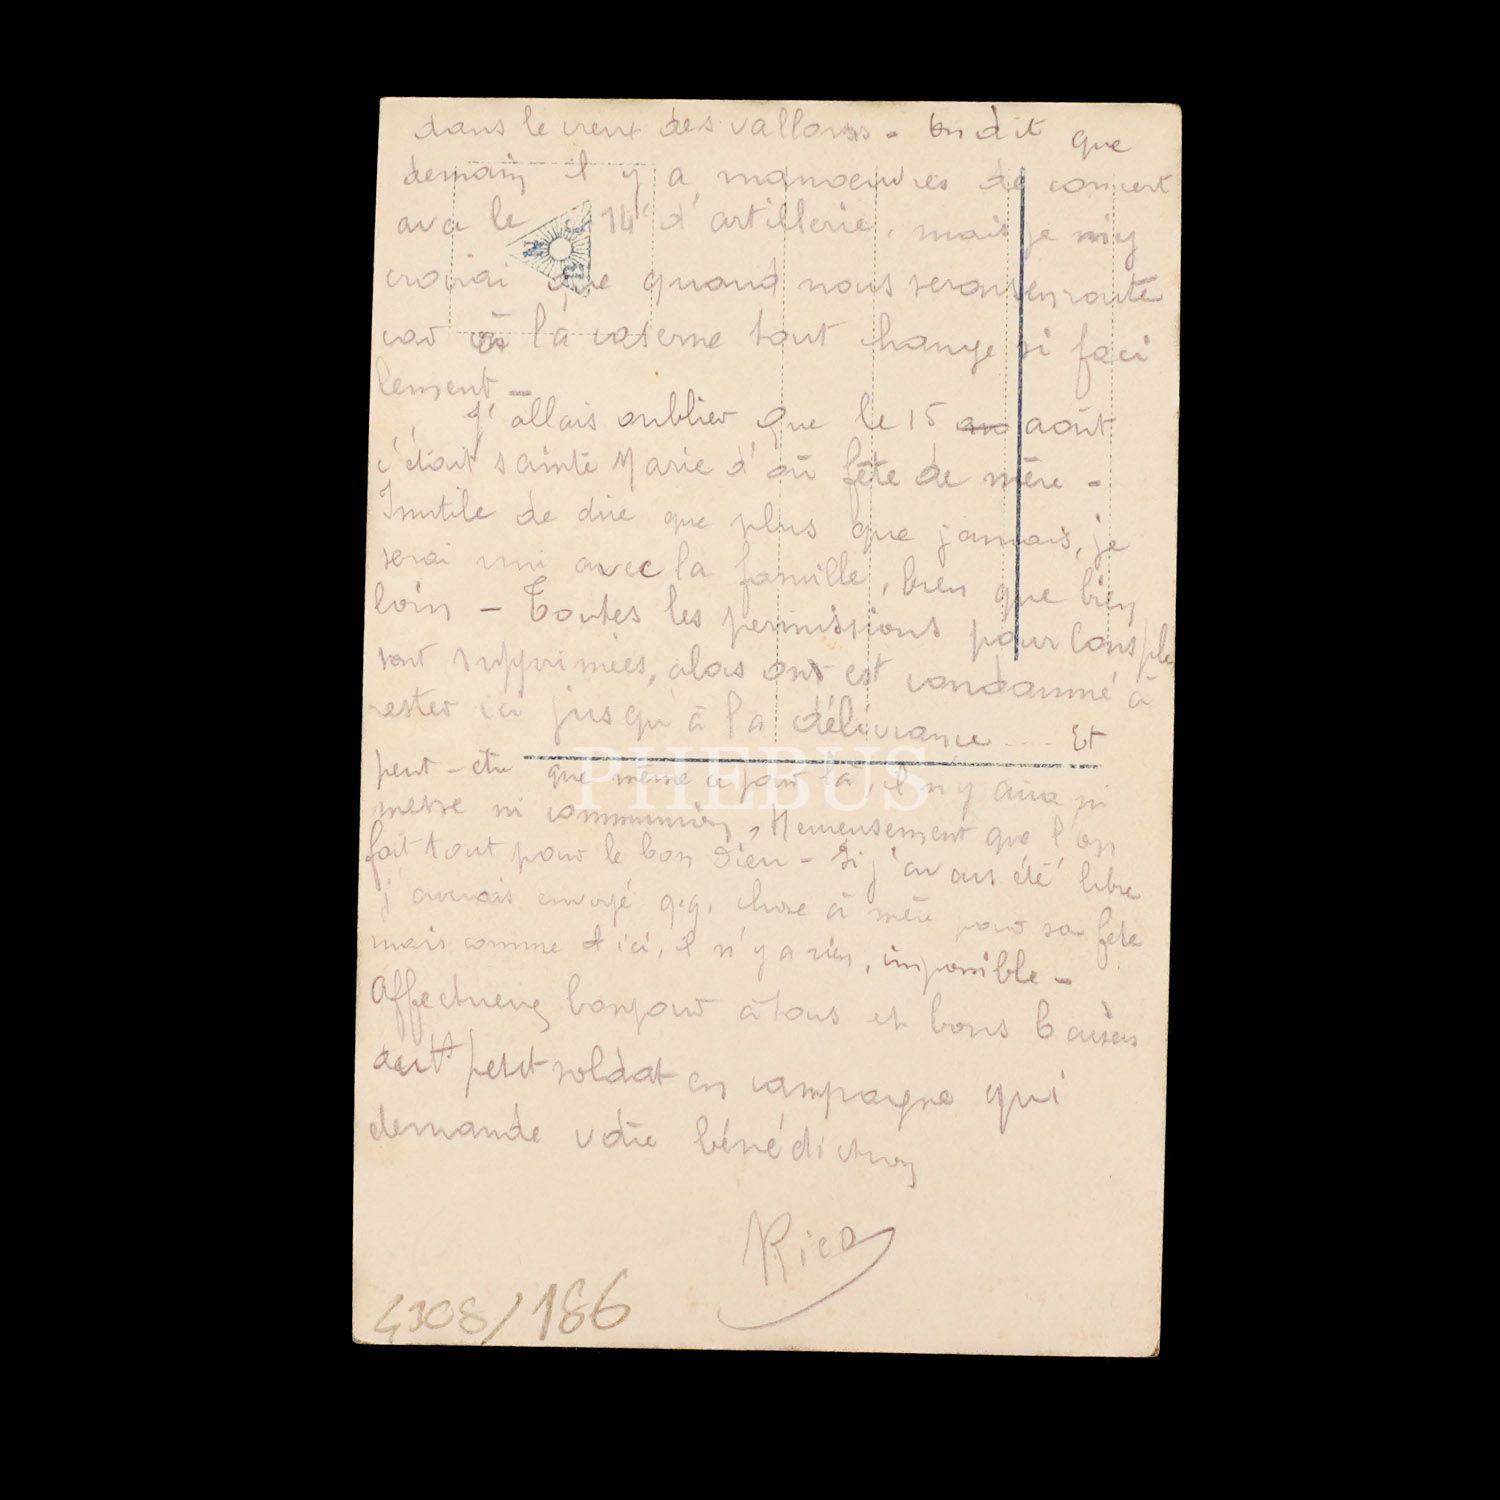 dans le creux des vallons - On dit que
demain il y a manoeuvres de concert
avec le 14e d'artillerie, mais je n'y
croirai que quand nous serons en route
car à la caserne tout change si faci
lement -
J'allais oublier que le 15 août
c'était sainte Marie d'où fête de mère -
Inutile de dire que plus que jamais, je
serai uni avec la famille, bien que bien
loin - Toutes les permissions pour Consple
sont supprimées, alors on est condamné à
rester ici jusqu'à la délivrance .... Et
peut-etre que même ce jour là, il n'y aura ni
messe ni communion, Heureusement que l'on
fait tout pour le bon Dieu - Si j'avais été libre
j'aurais envoyé q.q. chose à mère pour sa fete
mais comme ici, il n'y a rien, impossible -
Affectueux bonjour à tous et bons baisers
petit soldat en campagne qui
demande votre bénédiction
Rico
4308/186
PHEBUS